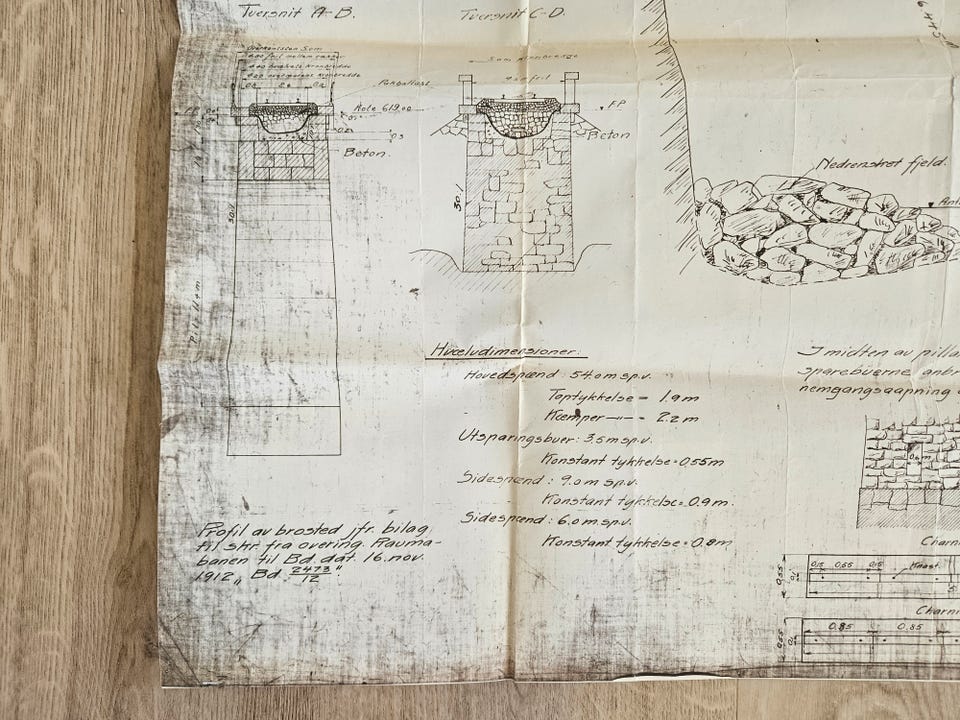 Tversnit A-B.
Tversnit C-D.
Som
4.20
Pukballast
Kote 619.00
FP
Beton.
Beton
30:1
30:1
Nedrenset fjeld.
Hvælvdimensioner:
Hovedspænd: 54.0 m sp.v.
Toptykkelse = 1.9 m
Kæmper —"— 2.2 m
Utsparingsbuer: 3.5 m sp.v.
Konstant tykkelse = 0.55 m
Sidespænd: 9.0 m sp.v.
Konstant tykkelse = 0.9 m.
Sidespænd: 6.0 m sp.v.
Konstant tykkelse = 0.8 m
Profil av brosted jfr. bilag
til skr. fra overing. Rauma-
banen til Bd. dat. 16. nov.
1912 „ Bd. 2473/12 "
I midten av pilla
sparebuerne anbr
nemgangsaapning
Charn
0.15 0.55 0.15 Knast
0.55
Charn
0.85 0.85
0.55